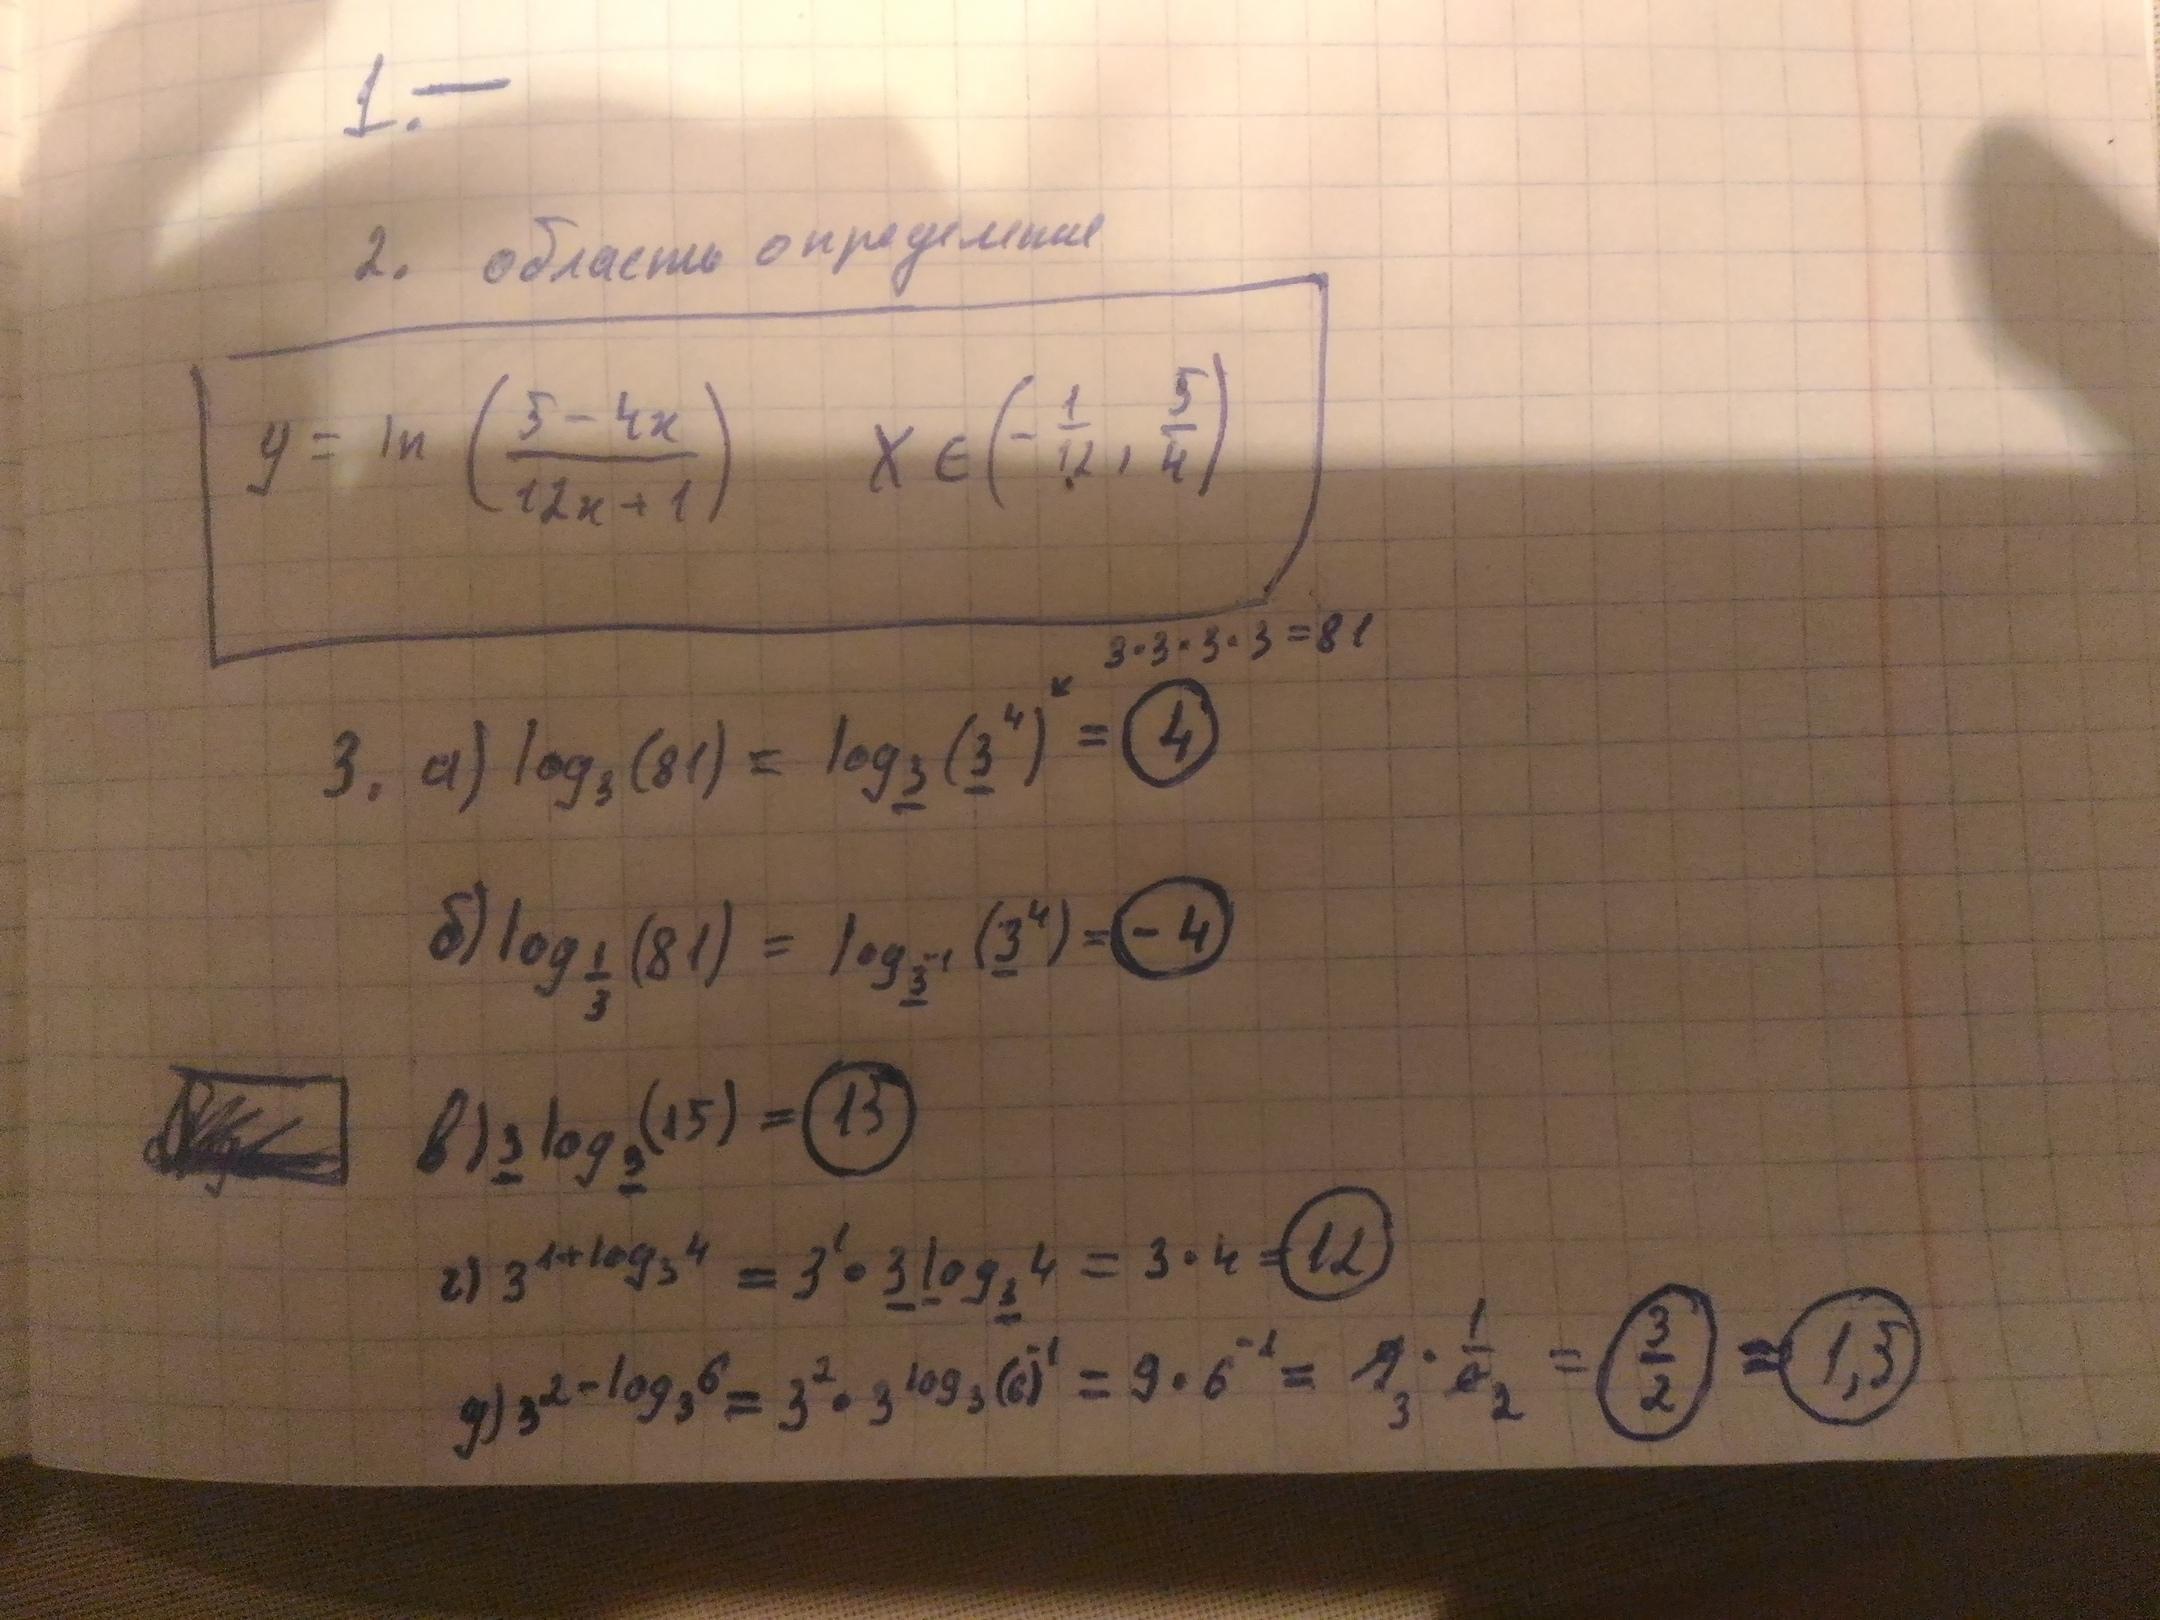 1. —
2. область определение
y = ln ( (5 - 4x) / (12x + 1) ) X ∈ ( - 1/12 , 5/4 )
3·3·3·3 = 81
3. а) log₃(81) = log₃(3⁴) = 4
б) log_{1/3}(81) = log_{3⁻¹}(3⁴) = -4
в) 3 log₃(15) = 15
г) 3^{1+log₃4} = 3¹ · 3 log₃4 = 3 · 4 = 12
д) 3^{2-log₃6} = 3² · 3^{log₃(6)⁻¹} = 9 · 6⁻¹ = 9 3 · 1/6 2 = 3/2 = 1,5